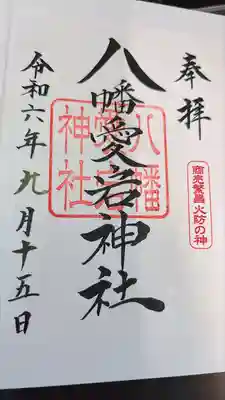 奉拝
商売繁昌 火防の神
八幡愛宕神社
令和六年九月十五日